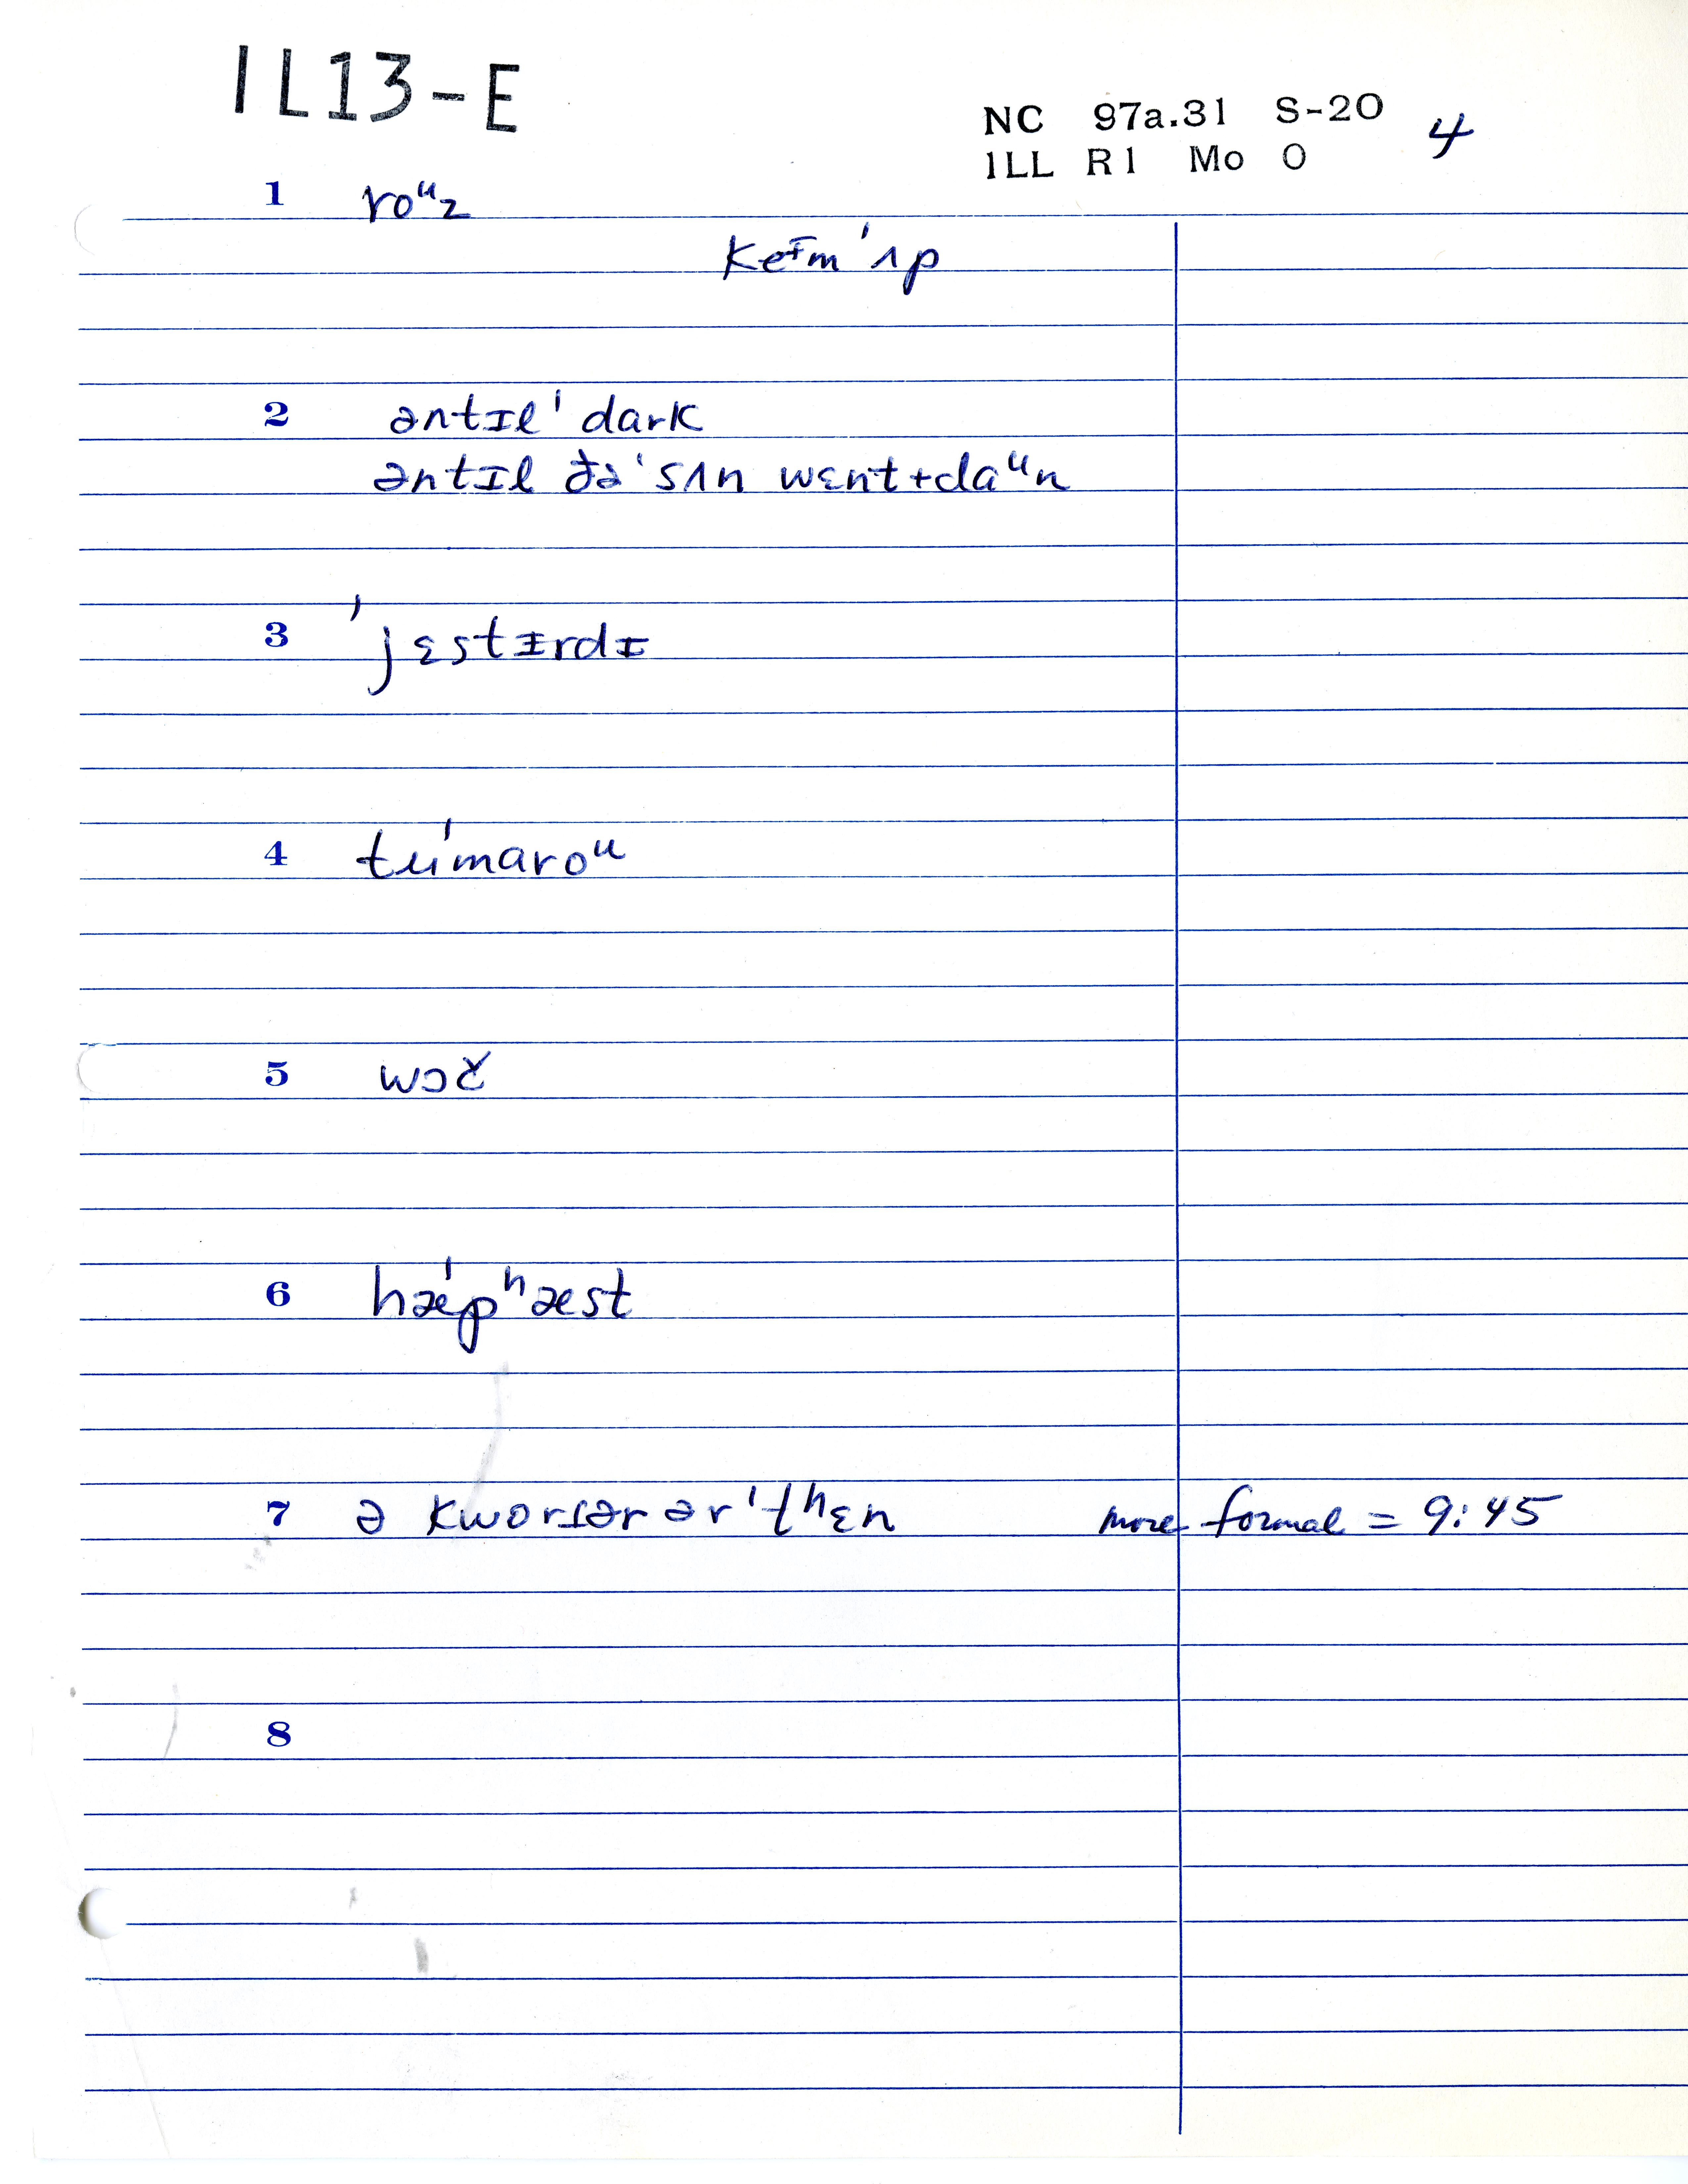 IL13-E
NC 97a.31 S-20 4
ILL R1 Mo O
1 roᵘz
keᵻm ˈʌp
2 əntɪl ˈdark
əntɪl ðə ˈsʌn wɛnt+daᵘn
3 ˈjɛstᵻrdᵻ
4 tʉˈmaroᵘ
5 wɔč
6 hæˈpʰæst
7 ə kworɾər ər ˈtʰɛn more formal = 9:45
8